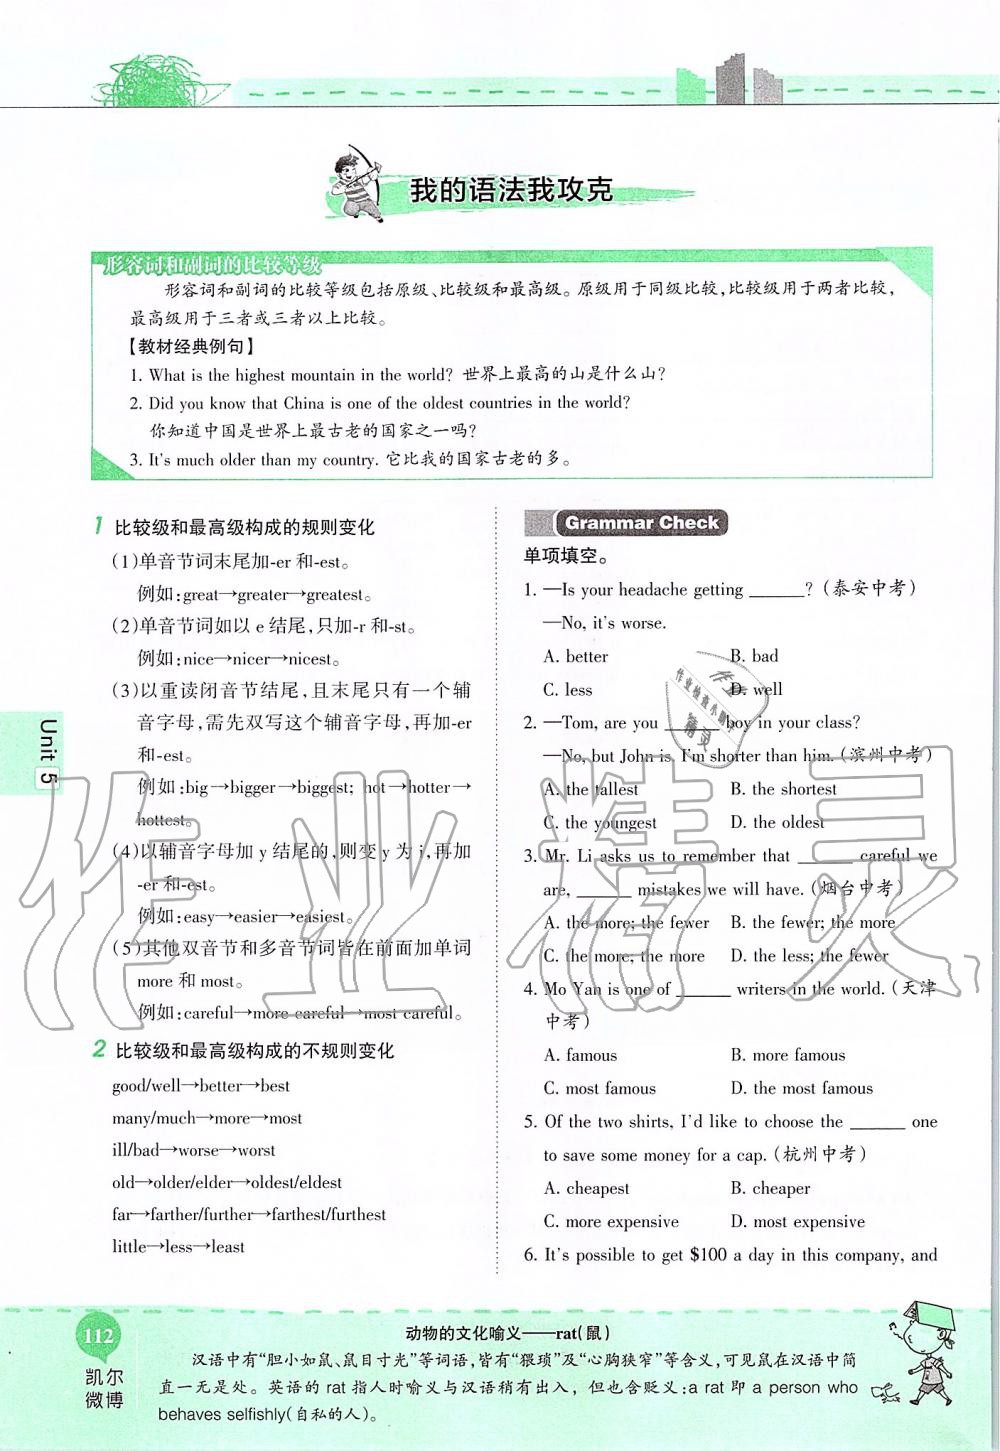 我的语法我攻克
形容词和副词的比较等级
形容词和副词的比较等级包括原级、比较级和最高级。原级用于同级比较,比较级用于两者比较,
最高级用于三者或三者以上比较。
【教材经典例句】
1. What is the highest mountain in the world? 世界上最高的山是什么山?
2. Did you know that China is one of the oldest countries in the world?
你知道中国是世界上最古老的国家之一吗?
3. It's much older than my country. 它比我的国家古老的多。
1 比较级和最高级构成的规则变化
(1)单音节词末尾加-er 和-est。
例如:great→greater→greatest。
(2)单音节词如以 e 结尾,只加-r 和-st。
例如:nice→nicer→nicest。
(3)以重读闭音节结尾,且末尾只有一个辅
音字母,需先双写这个辅音字母,再加-er
和-est。
例如:big→bigger→biggest; hot→hotter→
hottest。
(4)以辅音字母加 y 结尾的,则变 y 为 i,再加
-er 和-est。
例如:easy→easier→easiest。
(5)其他双音节和多音节词皆在前面加单词
more 和 most。
例如:careful→more careful→most careful。
2 比较级和最高级构成的不规则变化
good/well→better→best
many/much→more→most
ill/bad→worse→worst
old→older/elder→oldest/eldest
far→farther/further→farthest/furthest
little→less→least
Grammar Check
单项填空。
1. —Is your headache getting ______? (泰安中考)
—No, it's worse.
A. better B. bad
C. less D. well
2. —Tom, are you ______ boy in your class?
—No, but John is. I'm shorter than him. (滨州中考)
A. the tallest B. the shortest
C. the youngest D. the oldest
3. Mr. Li asks us to remember that ______ careful we
are, ______ mistakes we will have. (烟台中考)
A. the more; the fewer B. the fewer; the more
C. the more; the more D. the less; the fewer
4. Mo Yan is one of ______ writers in the world. (天津
中考)
A. famous B. more famous
C. most famous D. the most famous
5. Of the two shirts, I'd like to choose the ______ one
to save some money for a cap. (杭州中考)
A. cheapest B. cheaper
C. more expensive D. most expensive
6. It's possible to get $100 a day in this company, and
Unit 5
作业精灵
作业
作业检查小助手
精灵
112
凯尔
微博
动物的文化喻义——rat(鼠)
汉语中有“胆小如鼠、鼠目寸光”等词语,皆有“猥琐”及“心胸狭窄”等含义,可见鼠在汉语中简
直一无是处。英语的 rat 指人时喻义与汉语稍有出入，但也含贬义:a rat 即 a person who
behaves selfishly(自私的人)。